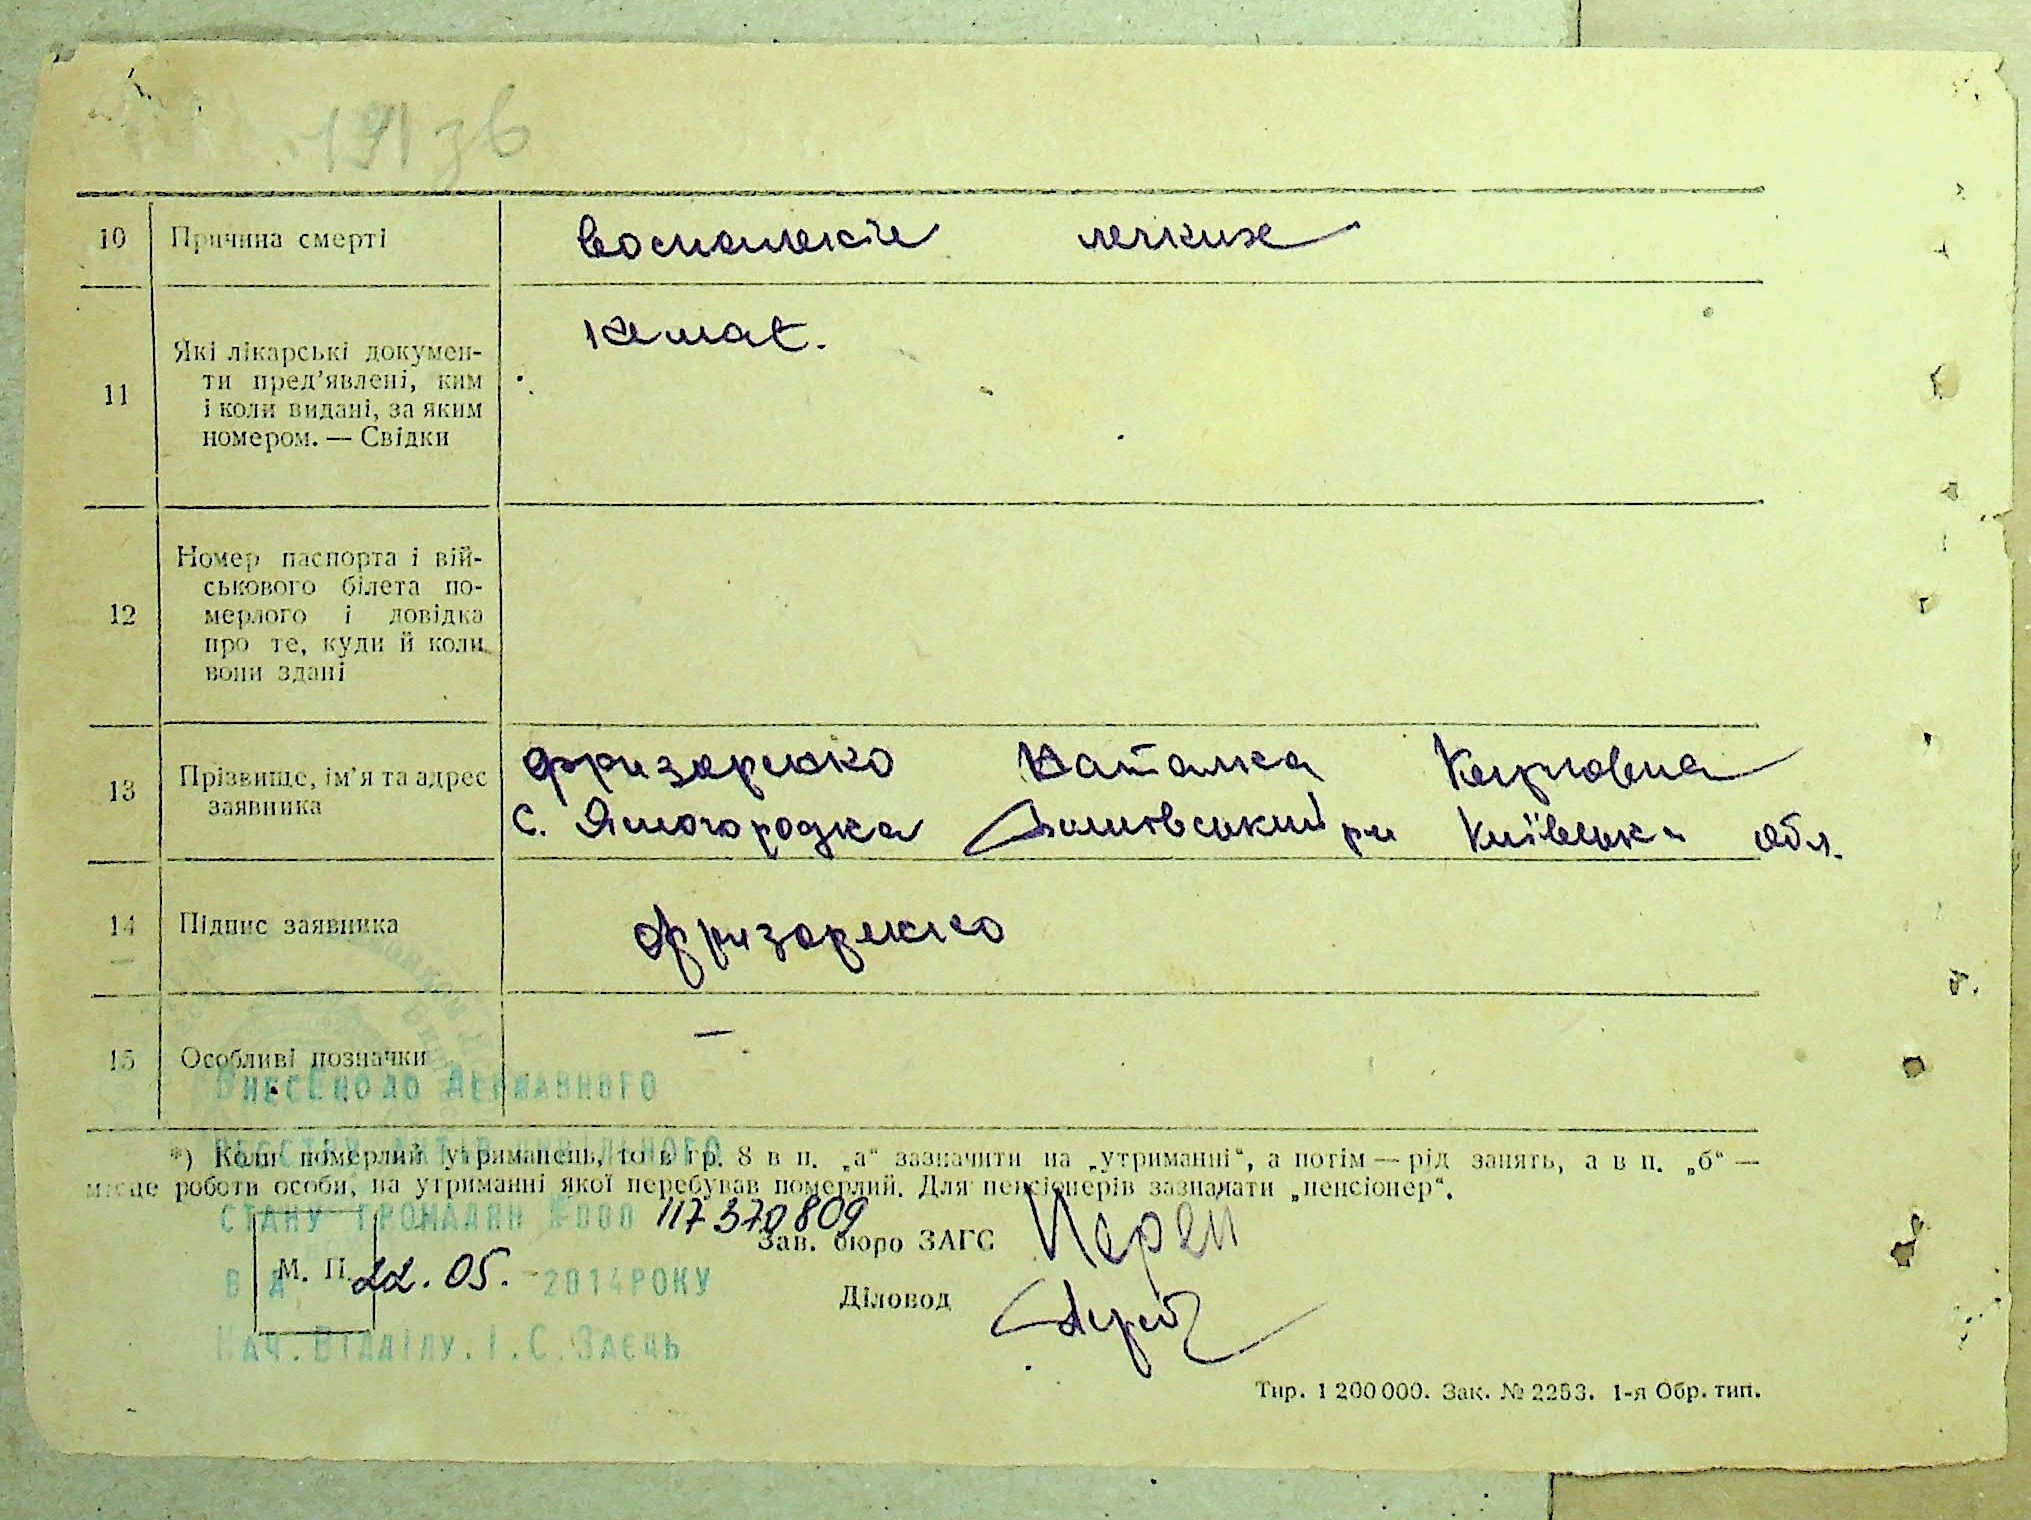 191 зв
10 Причина смерті воспаленiе легких
11 Які лікарські докумен-
ти пред'явлені, ким
і коли видані, за яким
номером. — Свідки
немає.
12 Номер паспорта і вій-
ськового білета по-
мерлого і довідка
про те, куди й коли
вони здані
13 Прізвище, ім'я та адрес
заявника
Фризоренко Наталка Карповна
с. Ямогородка р-н Київська обл.
14 Підпис заявника Фризоренко
15 Особливі позначки —
Внесено до Державного
реєстру актів цивільного
*) Коли померлий утриманець, то в гр. 8 в п. „а“ зазначити на „утриманні“, а потім — рід занять, а в п. „б“ —
місце роботи особи, на утриманні якої перебував померлий. Для пенсіонерів зазначати „пенсіонер“.
стану громадян №000 117370809
Зав. бюро ЗАГС
М. П.
від 22.05. 2014 року
Діловод
Нач. Відділу. І. С. Заєць
Тир. 1 200 000. Зак. № 2253. 1-я Обр. тип.